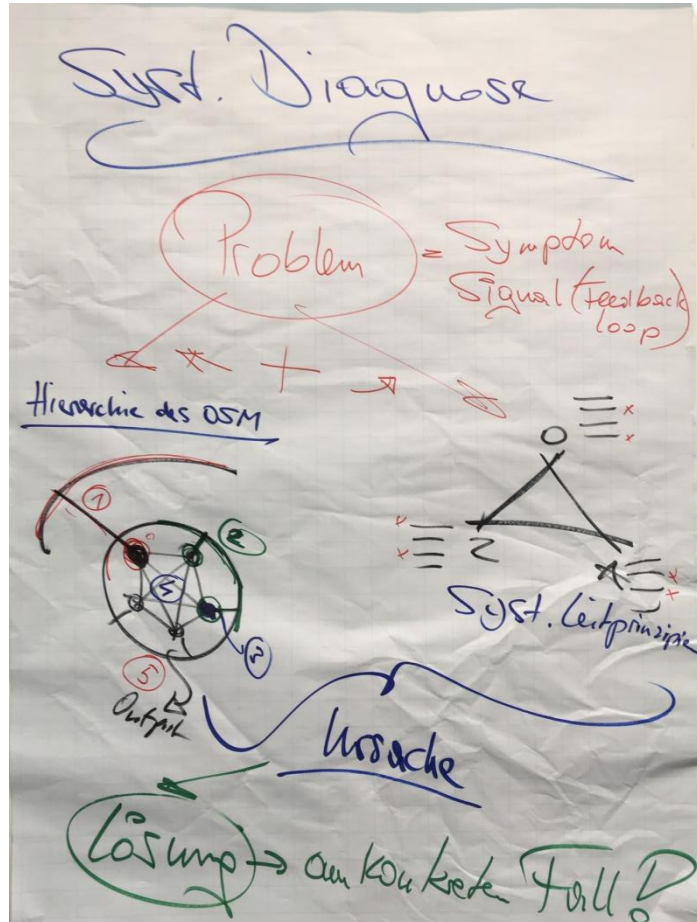 Syst. Diagnose
Problem
= Symptom
Signal (Feedback
loop)
Hierarchie des OSM
O
Z
①
②
③
⑤
Syst. Leitprinzipien
Output
Ursache
Lösung → am konkreten Fall!